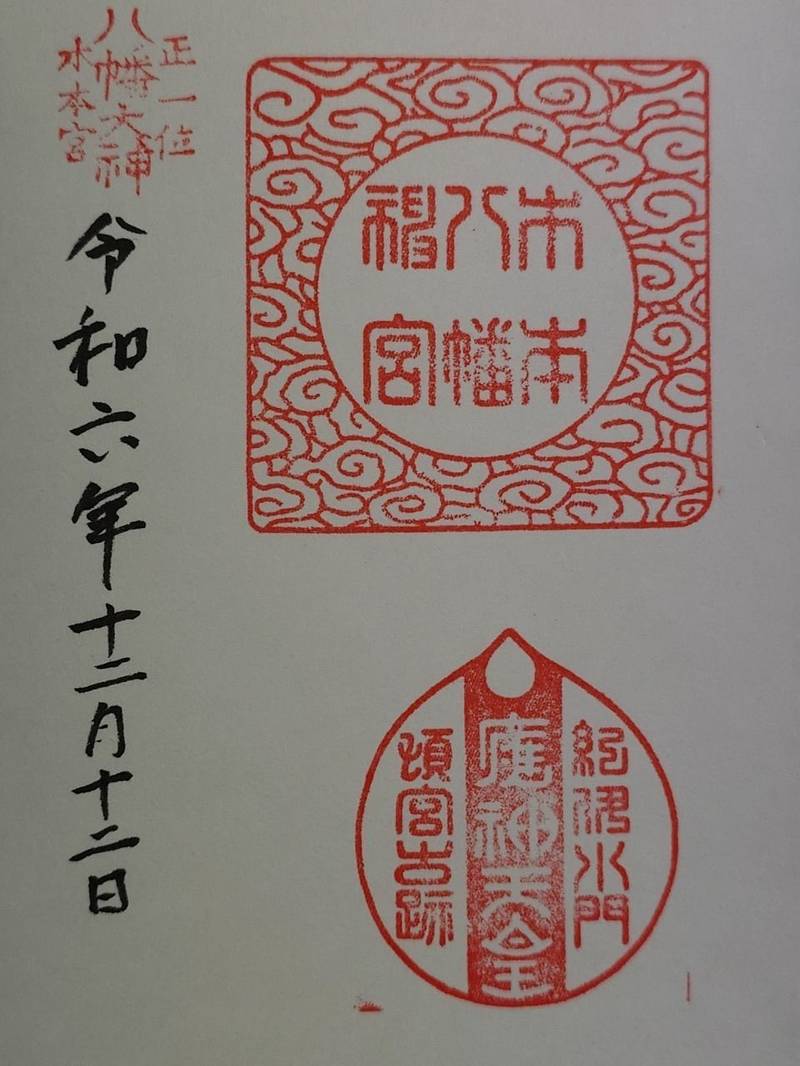 木本
八幡
神宮
紀伊水門
應神天皇
頓宮古跡
正一位
八幡大神
木本宮
令和六年十二月十二日